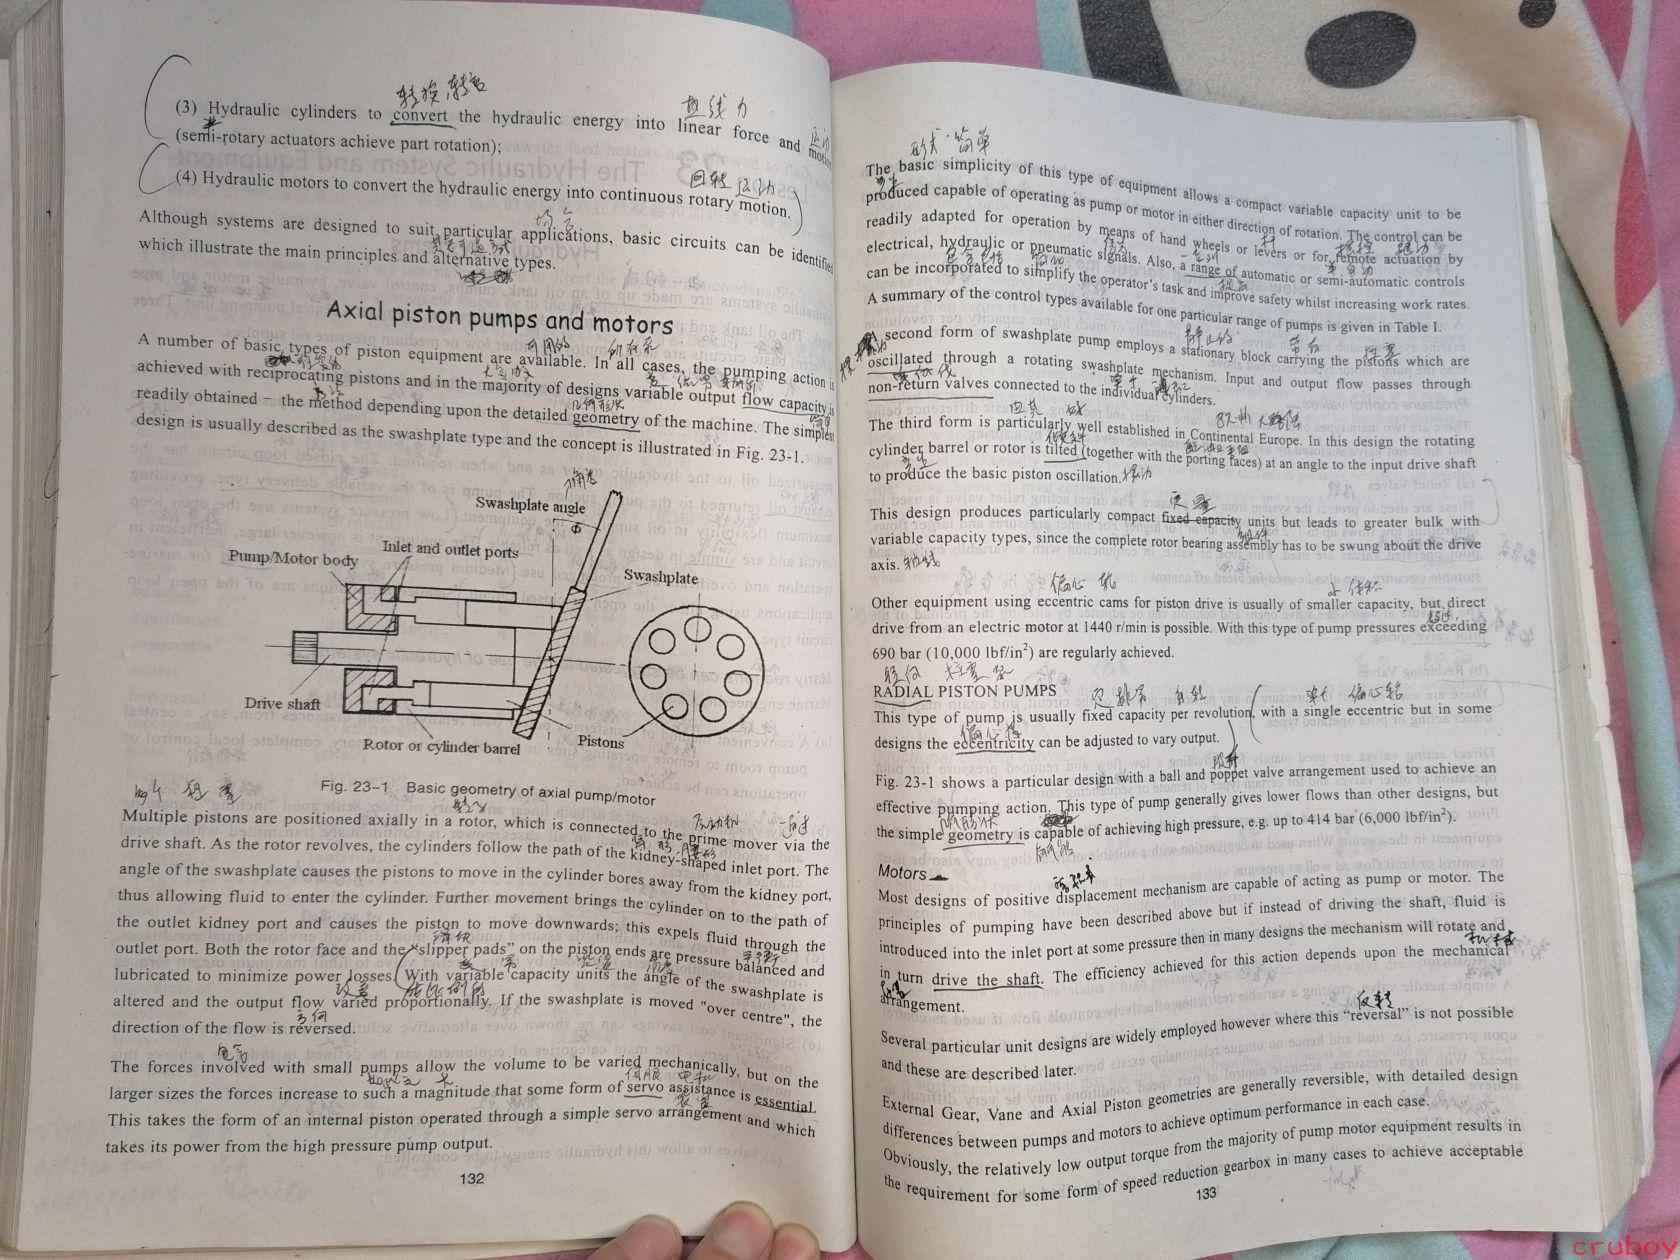 转换 转变
(3) Hydraulic cylinders to convert the hydraulic energy into linear force and motion
直线力
运动
(semi-rotary actuators achieve part rotation);
(4) Hydraulic motors to convert the hydraulic energy into continuous rotary motion.
回转 运动
Although systems are designed to suit particular applications, basic circuits can be identified
which illustrate the main principles and alternative types.
Axial piston pumps and motors
A number of basic types of piston equipment are available. In all cases, the pumping action is
可用的
achieved with reciprocating pistons and in the majority of designs variable output flow capacity is
readily obtained – the method depending upon the detailed geometry of the machine. The simplest
方法
几何形状
design is usually described as the swashplate type and the concept is illustrated in Fig. 23-1.
Swashplate angle
Φ
Inlet and outlet ports
Pump/Motor body
Swashplate
Drive shaft
Rotor or cylinder barrel
Pistons
Fig. 23-1 Basic geometry of axial pump/motor
Multiple pistons are positioned axially in a rotor, which is connected to the prime mover via the
转子
原动机
通过
drive shaft. As the rotor revolves, the cylinders follow the path of the kidney-shaped inlet port. The
angle of the swashplate causes the pistons to move in the cylinder bores away from the kidney port,
thus allowing fluid to enter the cylinder. Further movement brings the cylinder on to the path of
the outlet kidney port and causes the piston to move downwards; this expels fluid through the
outlet port. Both the rotor face and the “slipper pads” on the piston ends are pressure balanced and
滑块
平衡
lubricated to minimize power losses. With variable capacity units the angle of the swashplate is
altered and the output flow varied proportionally. If the swashplate is moved "over centre", the
改变
成比例的
direction of the flow is reversed.
方向
The forces involved with small pumps allow the volume to be varied mechanically, but on the
包含
larger sizes the forces increase to such a magnitude that some form of servo assistance is essential.
伺服
This takes the form of an internal piston operated through a simple servo arrangement and which
装置
takes its power from the high pressure pump output.
132
形式 简单
The basic simplicity of this type of equipment allows a compact variable capacity unit to be
produced capable of operating as pump or motor in either direction of rotation. The control can be
readily adapted for operation by means of hand wheels or levers or for remote actuation by
杆
electrical, hydraulic or pneumatic signals. Also, a range of automatic or semi-automatic controls
信号
一系列
半自动
can be incorporated to simplify the operator's task and improve safety whilst increasing work rates.
提高
A summary of the control types available for one particular range of pumps is given in Table I.
A second form of swashplate pump employs a stationary block carrying the pistons which are
静止的
oscillated through a rotating swashplate mechanism. Input and output flow passes through
non-return valves connected to the individual cylinders.
The third form is particularly well established in Continental Europe. In this design the rotating
欧洲大陆
cylinder barrel or rotor is tilted (together with the porting faces) at an angle to the input drive shaft
倾斜
to produce the basic piston oscillation.
产生
振动
This design produces particularly compact fixed capacity units but leads to greater bulk with
定量
variable capacity types, since the complete rotor bearing assembly has to be swung about the drive
组件
axis.
轴线
偏心轮
小体积
Other equipment using eccentric cams for piston drive is usually of smaller capacity, but direct
drive from an electric motor at 1440 r/min is possible. With this type of pump pressures exceeding
超过
690 bar (10,000 lbf/in²) are regularly achieved.
径向 柱塞泵
RADIAL PISTON PUMPS
This type of pump is usually fixed capacity per revolution, with a single eccentric but in some
定排量
单个 偏心轮
designs the eccentricity can be adjusted to vary output.
Fig. 23-1 shows a particular design with a ball and poppet valve arrangement used to achieve an
effective pumping action. This type of pump generally gives lower flows than other designs, but
the simple geometry is capable of achieving high pressure, e.g. up to 414 bar (6,000 lbf/in²).
Motors
Most designs of positive displacement mechanism are capable of acting as pump or motor. The
principles of pumping have been described above but if instead of driving the shaft, fluid is
introduced into the inlet port at some pressure then in many designs the mechanism will rotate and
in turn drive the shaft. The efficiency achieved for this action depends upon the mechanical
机械
arrangement.
反转
Several particular unit designs are widely employed however where this “reversal” is not possible
and these are described later.
External Gear, Vane and Axial Piston geometries are generally reversible, with detailed design
differences between pumps and motors to achieve optimum performance in each case.
Obviously, the relatively low output torque from the majority of pump motor equipment results in
the requirement for some form of speed reduction gearbox in many cases to achieve acceptable
133
cruboy